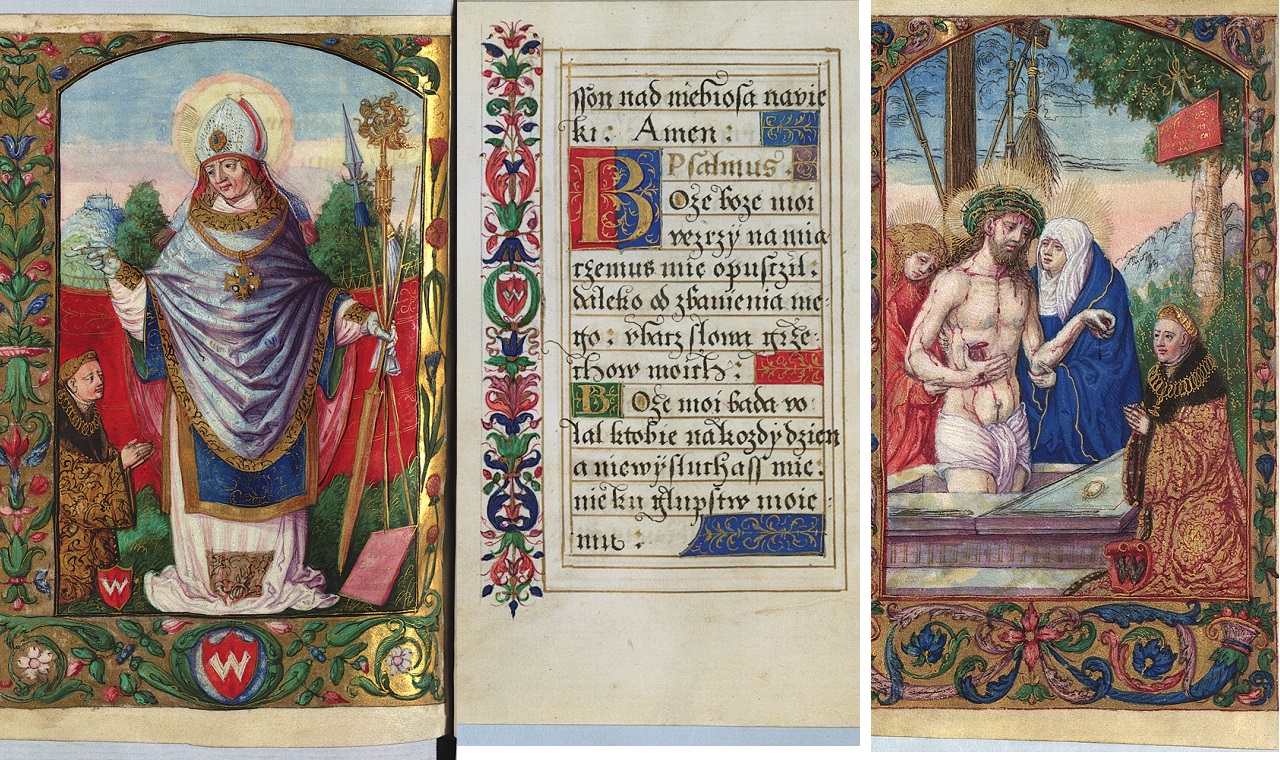 ſſon nad niebioſa navie
ki: Amen:
Psalmus.
Boże boże moi
vezrzÿ na mia
czemus mie opuſczil:
daleko od zbavienia me-
go: vbacz slowa grze-
chow moich:
Boże moi bada vo-
lal ktobie na kozdÿ dzien
a niewÿsluchaſſ mie.
nie ku glupſtw moie-
mu: